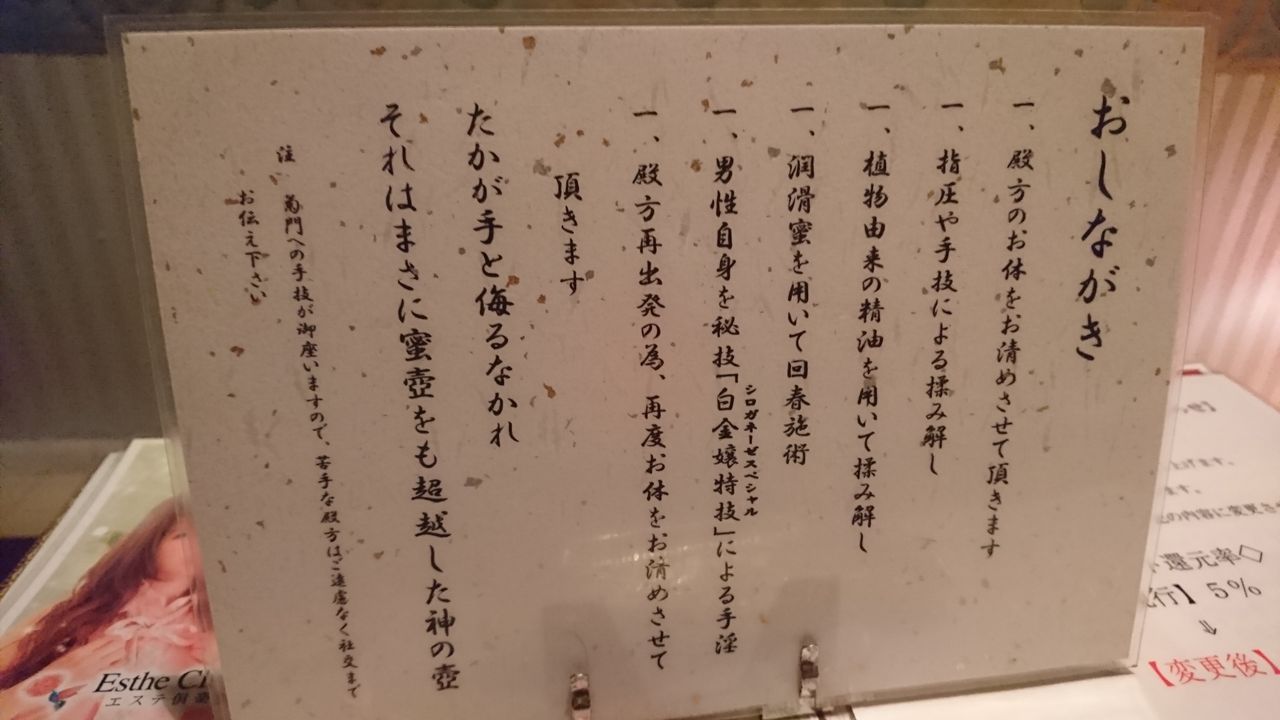 おしながき
一、殿方のお体をお清めさせて頂きます
一、指圧や手技による揉み解し
一、植物由来の精油を用いて揉み解し
一、潤滑蜜を用いて回春施術
一、男性自身を秘技「白金嬢特技」による手淫
シロガネーゼスペシャル
一、殿方再出発の為、再度お体をお清めさせて
頂きます
たかが手と侮るなかれ
それはまさに蜜壺をも超越した神の壺
注 菊門への手技が御座いますので、苦手な殿方はご遠慮なく社交まで
お伝え下さい
Esthe Cl
エステ倶楽
げます。
ます。
の内容に変更さ
還元率◇
行】5%
⇓
【変更後】